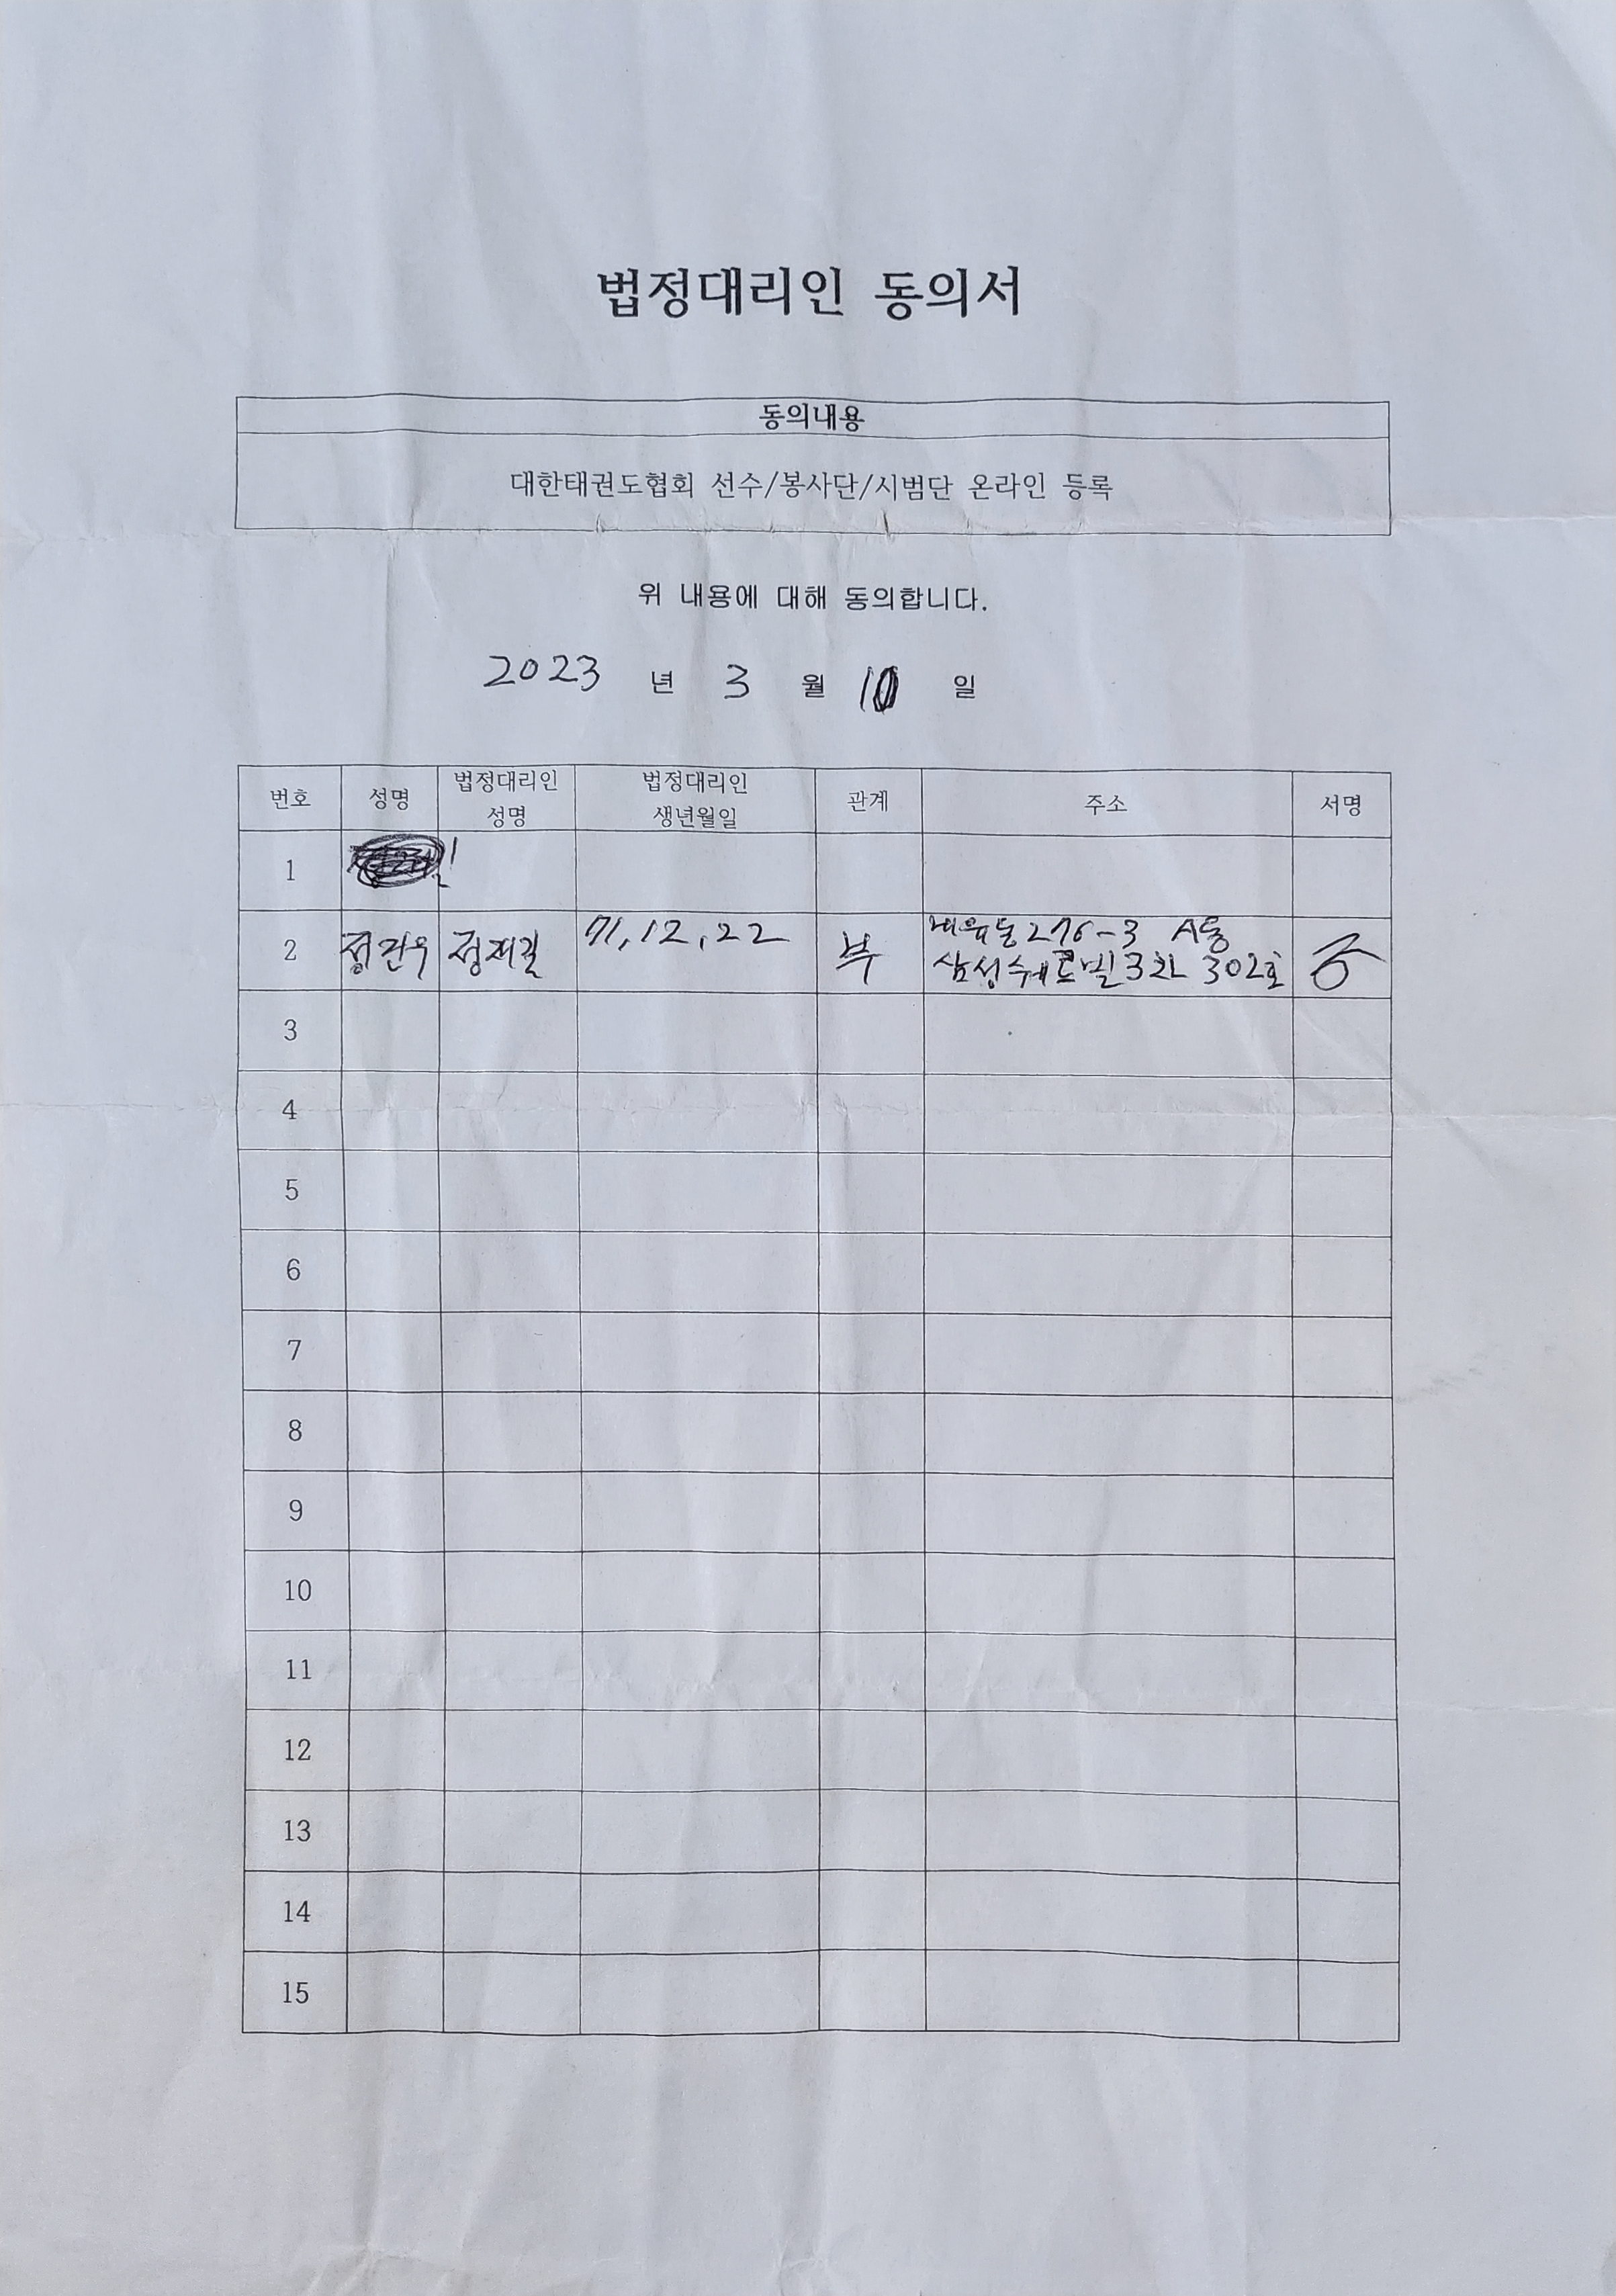 법정대리인 동의서
동의내용
대한태권도협회 선수/봉사단/시범단 온라인 등록
위 내용에 대해 동의합니다.
2023 년 3 월 10 일
번호 성명 법정대리인 성명 법정대리인 생년월일 관계 주소 서명
1
2 정건우 정재길 71,12,22 부 276-3 A동
삼성쉐르빌3차 302호
3
4
5
6
7
8
9
10
11
12
13
14
15